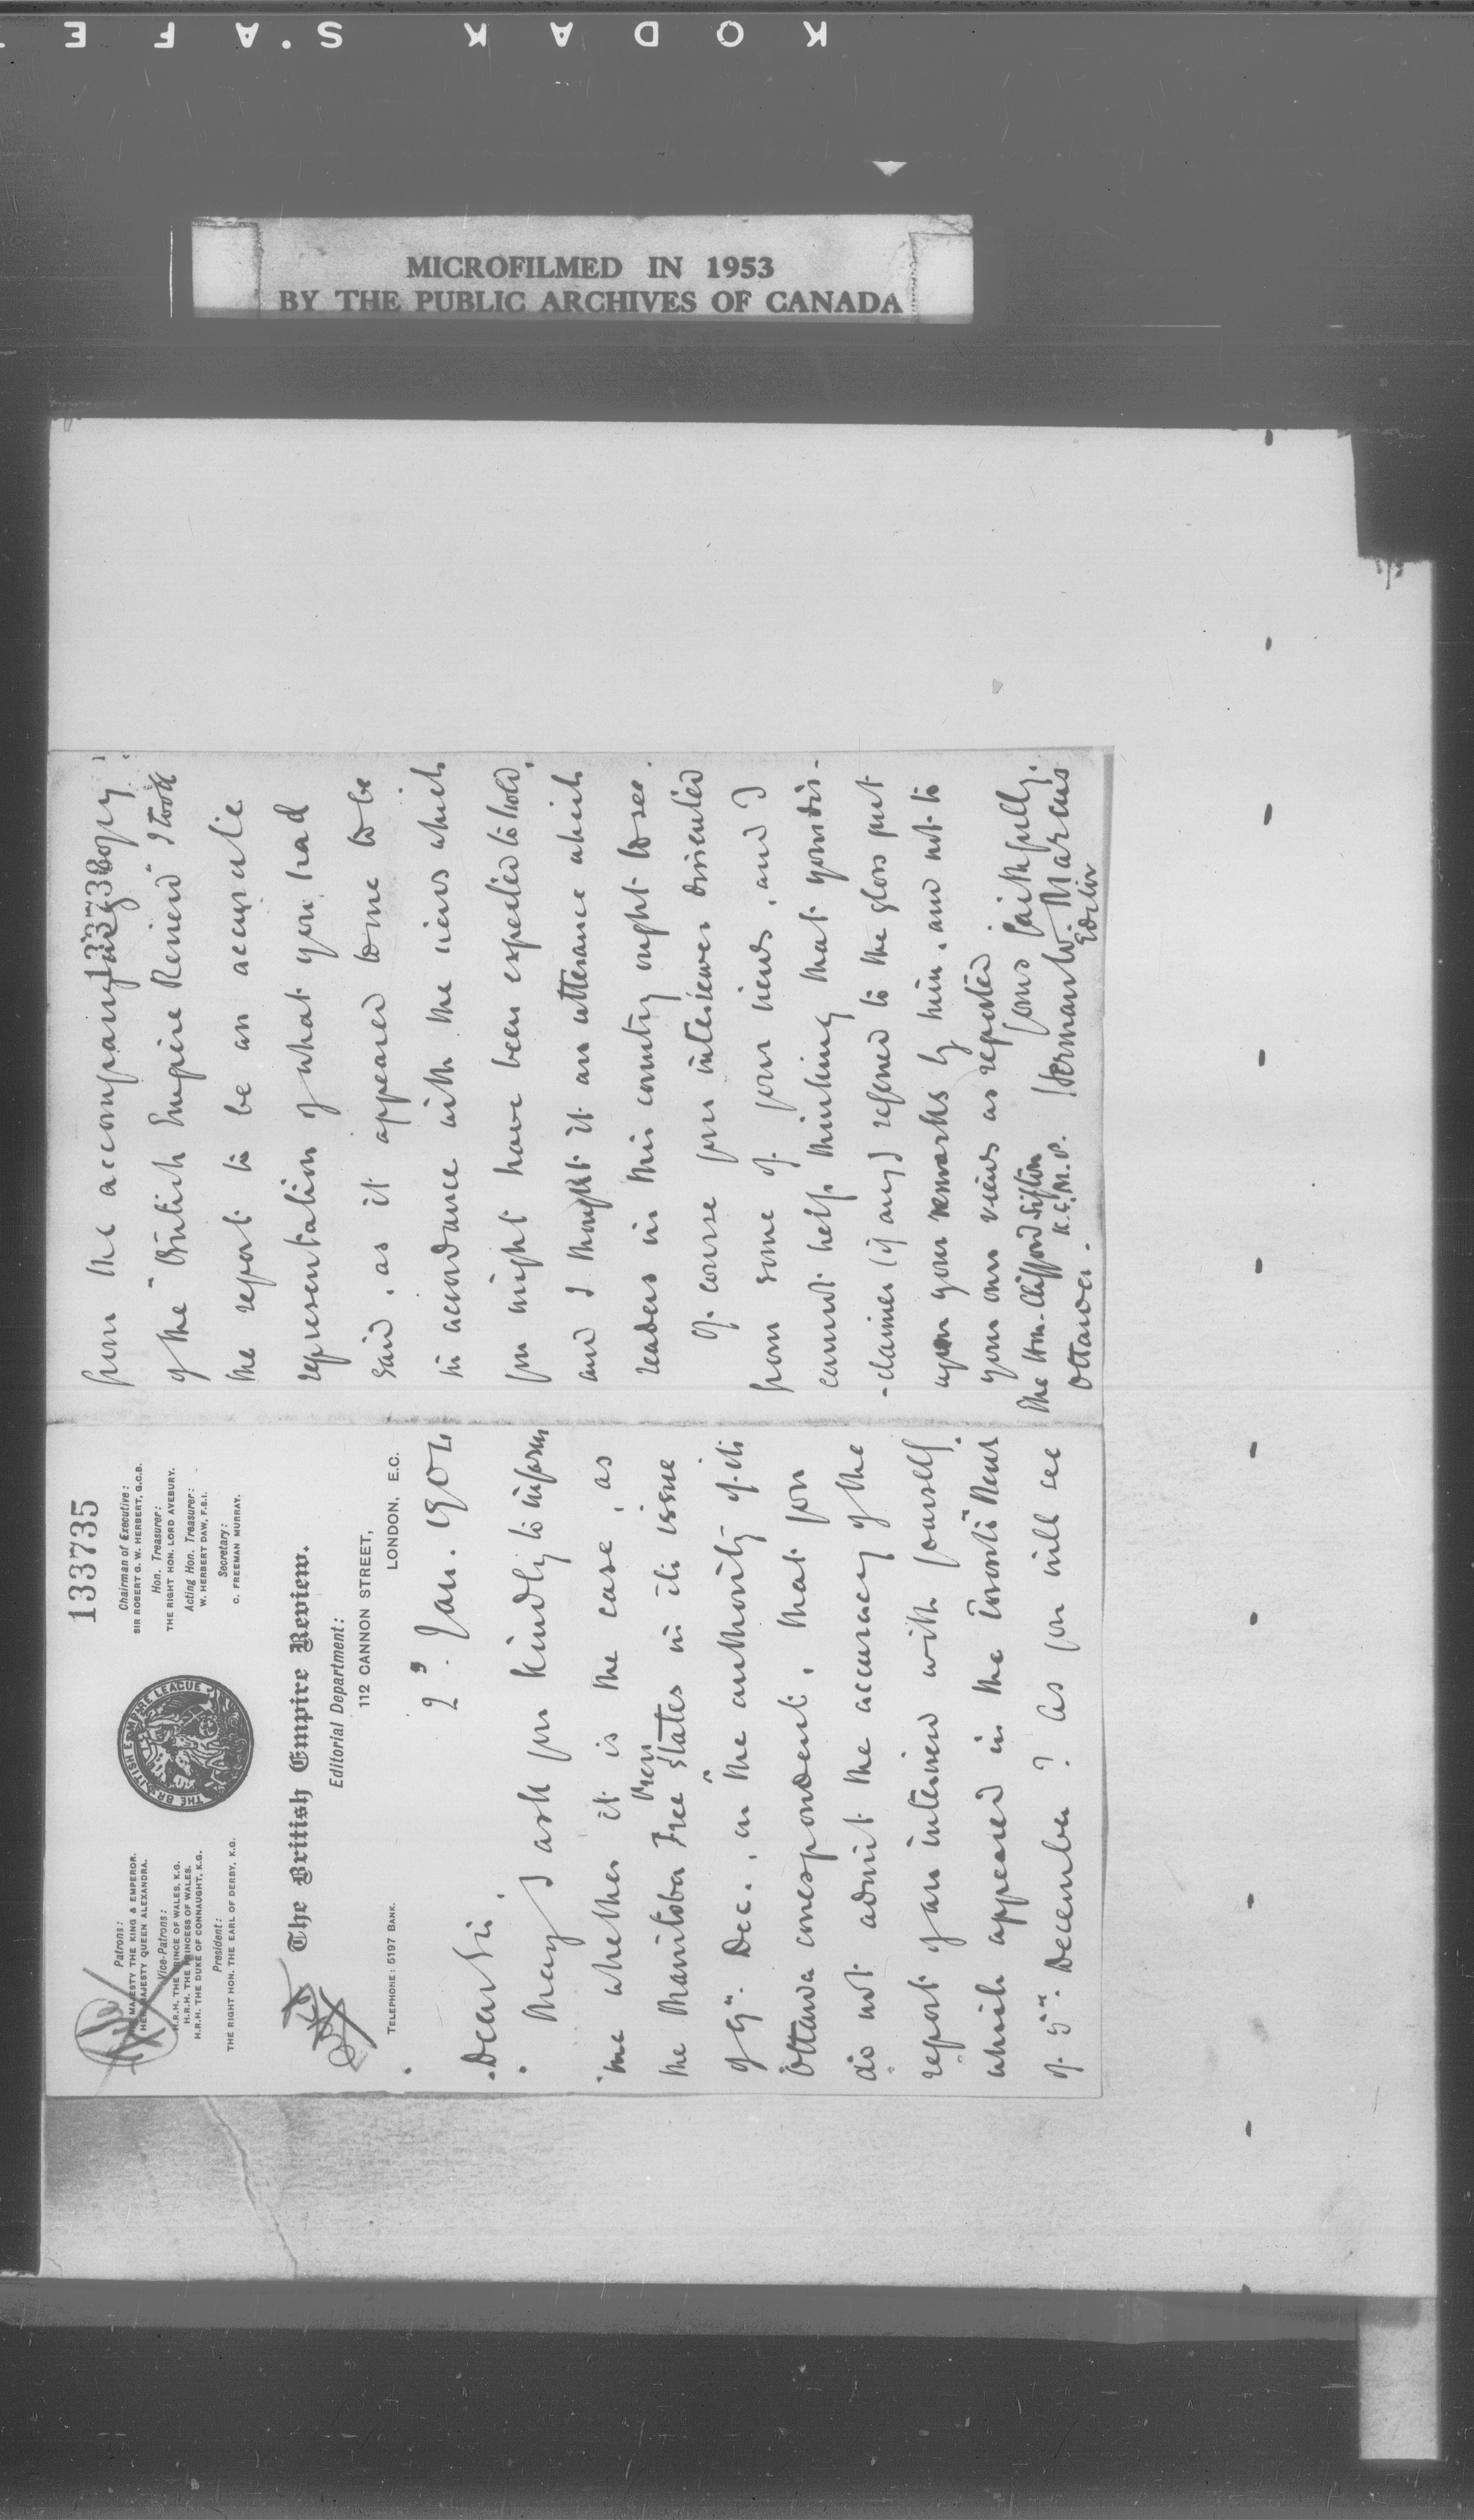 KODAK S.A F E
MICROFILMED IN 1953
BY THE PUBLIC ARCHIVES OF CANADA
133735
Patrons:
HIS MAJESTY THE KING & EMPEROR.
HER MAJESTY QUEEN ALEXANDRA.
Vice-Patrons:
H.R.H. THE PRINCE OF WALES, K.G.
H.R.H. THE PRINCESS OF WALES.
H.R.H. THE DUKE OF CONNAUGHT, K.G.
President:
THE RIGHT HON. THE EARL OF DERBY, K.G.
THE BRITISH EMPIRE LEAGUE
Chairman of Executive:
SIR ROBERT G. W. HERBERT, G.C.B.
Hon. Treasurer:
THE RIGHT HON. LORD AVEBURY.
Acting Hon. Treasurer:
W. HERBERT DAW, F.S.I.
Secretary:
C. FREEMAN MURRAY.
The British Empire Review.
Editorial Department:
112 CANNON STREET,
TELEPHONE: 5197 BANK.
LONDON, E.C.
2". Jan. 1904
Dear Sir,
May I ask you kindly to inform
me whether it is the case, as
the Manitoba Free Press states in its issue
of 9". Dec., on the authority of its
Ottawa correspondent, that you
do not admit the accuracy of the
report of an interview with yourself
which appeared in the Toronto "News"
of 5". December? As you will see
from the accompanying copy
133736
of the "British Empire Review" I took
the report to be an accurate
representation of what you had
said, as it appeared to me to be
in accordance with the views which
you might have been expected to hold,
and I thought it an utterance which
readers in this country ought to see.
Of course your interviewer dissented
from some of your views, and I
cannot help thinking that your dis-
-claimer (if any) referred to the gloss put
upon your remarks by him, and not to
your own views as reported.
Yours faithfully,
Herman W. Marcus
Editor
The Hon. Clifford Sifton
K.C. M.P.
Ottawa.